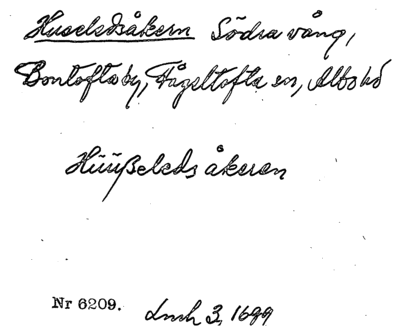 Huseledsåkern Södra vång,
Bontofta by, Fågeltofta sn, Albo hd
Hüüßeleds åkeren
Nr 6209. Lmh 3, 1699